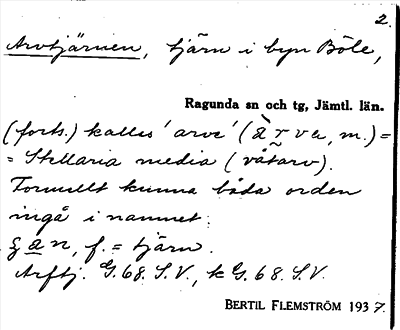 2.
Arvtjärnen, tjärn i byn Böle,
Ragunda sn och tg, Jämtl. län.
(forts.) kallis 'arve' (àrva, m.) =
= Stellaria media (våtarv).
Formellt kunna båda orden
ingå i namnet.
ʒan, f. = tjärn.
Arftj. G.68. S.V., k G.68. S.V.
BERTIL FLEMSTRÖM 1937.